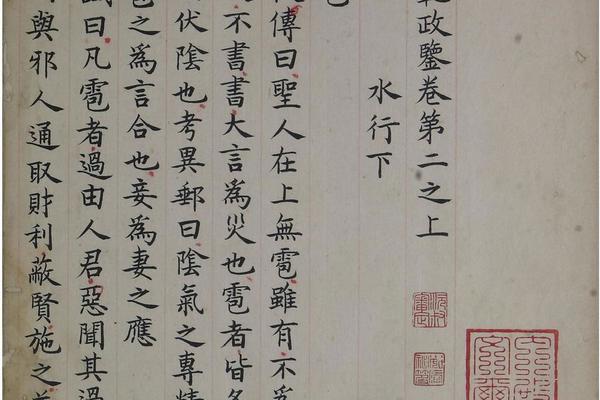 政鑒卷第二之上
水行下
傳曰聖人在上無雹雖有不為
不書書大言為災也雹者皆冬
伏陰也考異郵曰陰氣之專精
之為言合也妾為妻之應
曰凡雹者過由人君惡聞其過
與邪人通取財利蔽賢施之